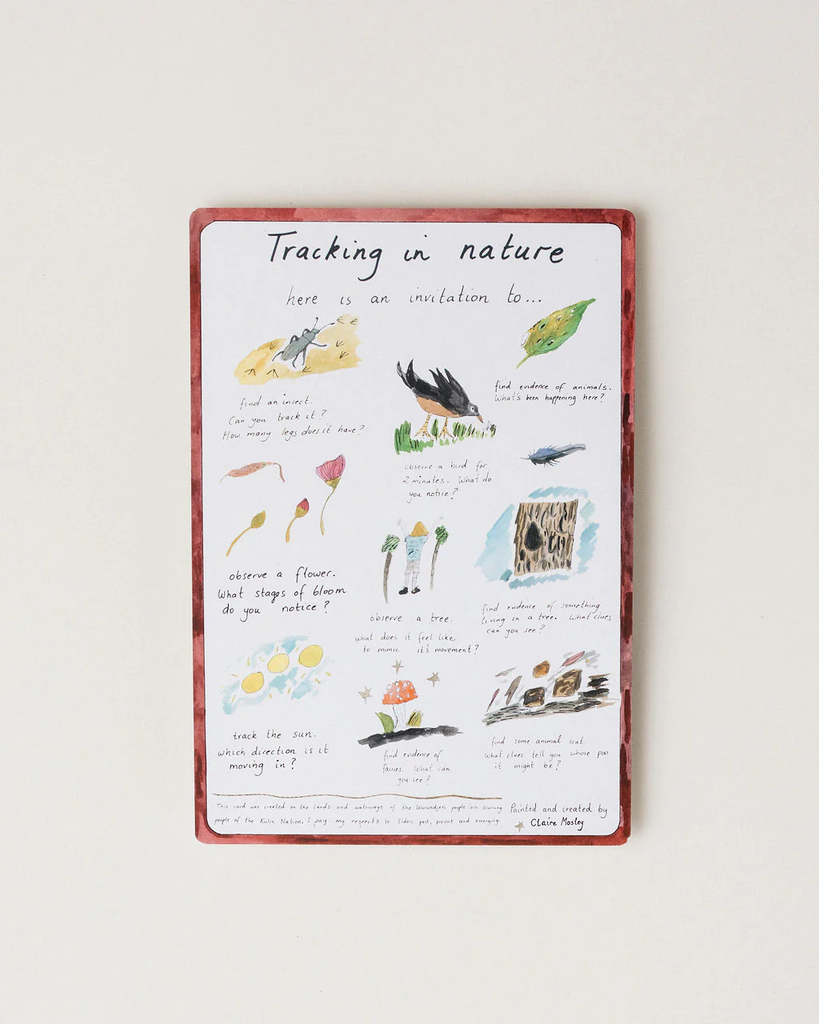 Tracking in nature
here is an invitation to...
find an insect.
Can you track it?
How many legs does it have?
observe a bird for
2 minutes. What do
you notice?
find evidence of animals.
What's been happening here?
observe a flower.
What stages of bloom
do you notice?
observe a tree.
what does it feel like
to mimic it's movement?
find evidence of something
living in a tree. What clues
can you see?
track the sun.
which direction is it
moving in?
find evidence of
fairies. What can
you see?
find some animal scat.
What clues tell you whose poo
it might be?
This card was created on the lands and waterways of the Wurundjeri people
people of the Kulin Nation. I pay my respects to Elders past, present and emerging.
Painted and created by
Claire Mosley